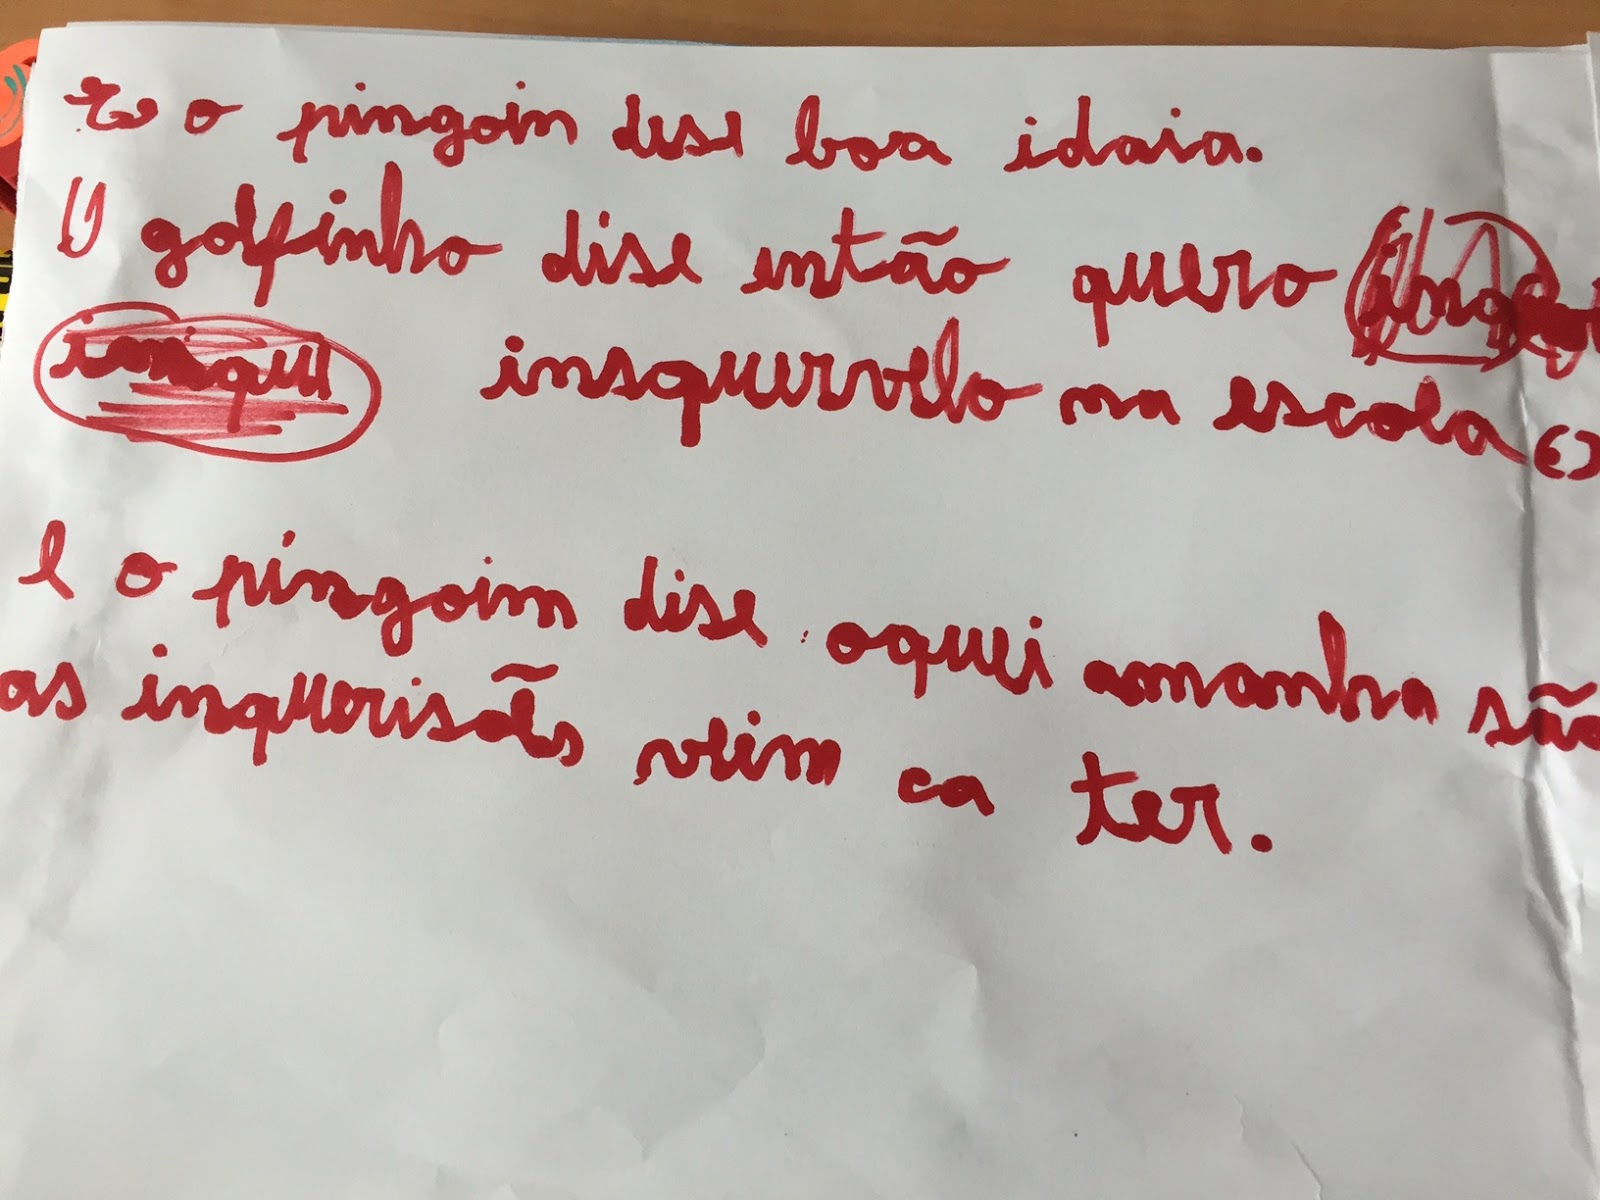 E o pingoin dise boa idaia.
O golfinho dise então quero
insquervelo na escola
e o pingoim dise oquei amanha são
as inquerisões veim ca ter.